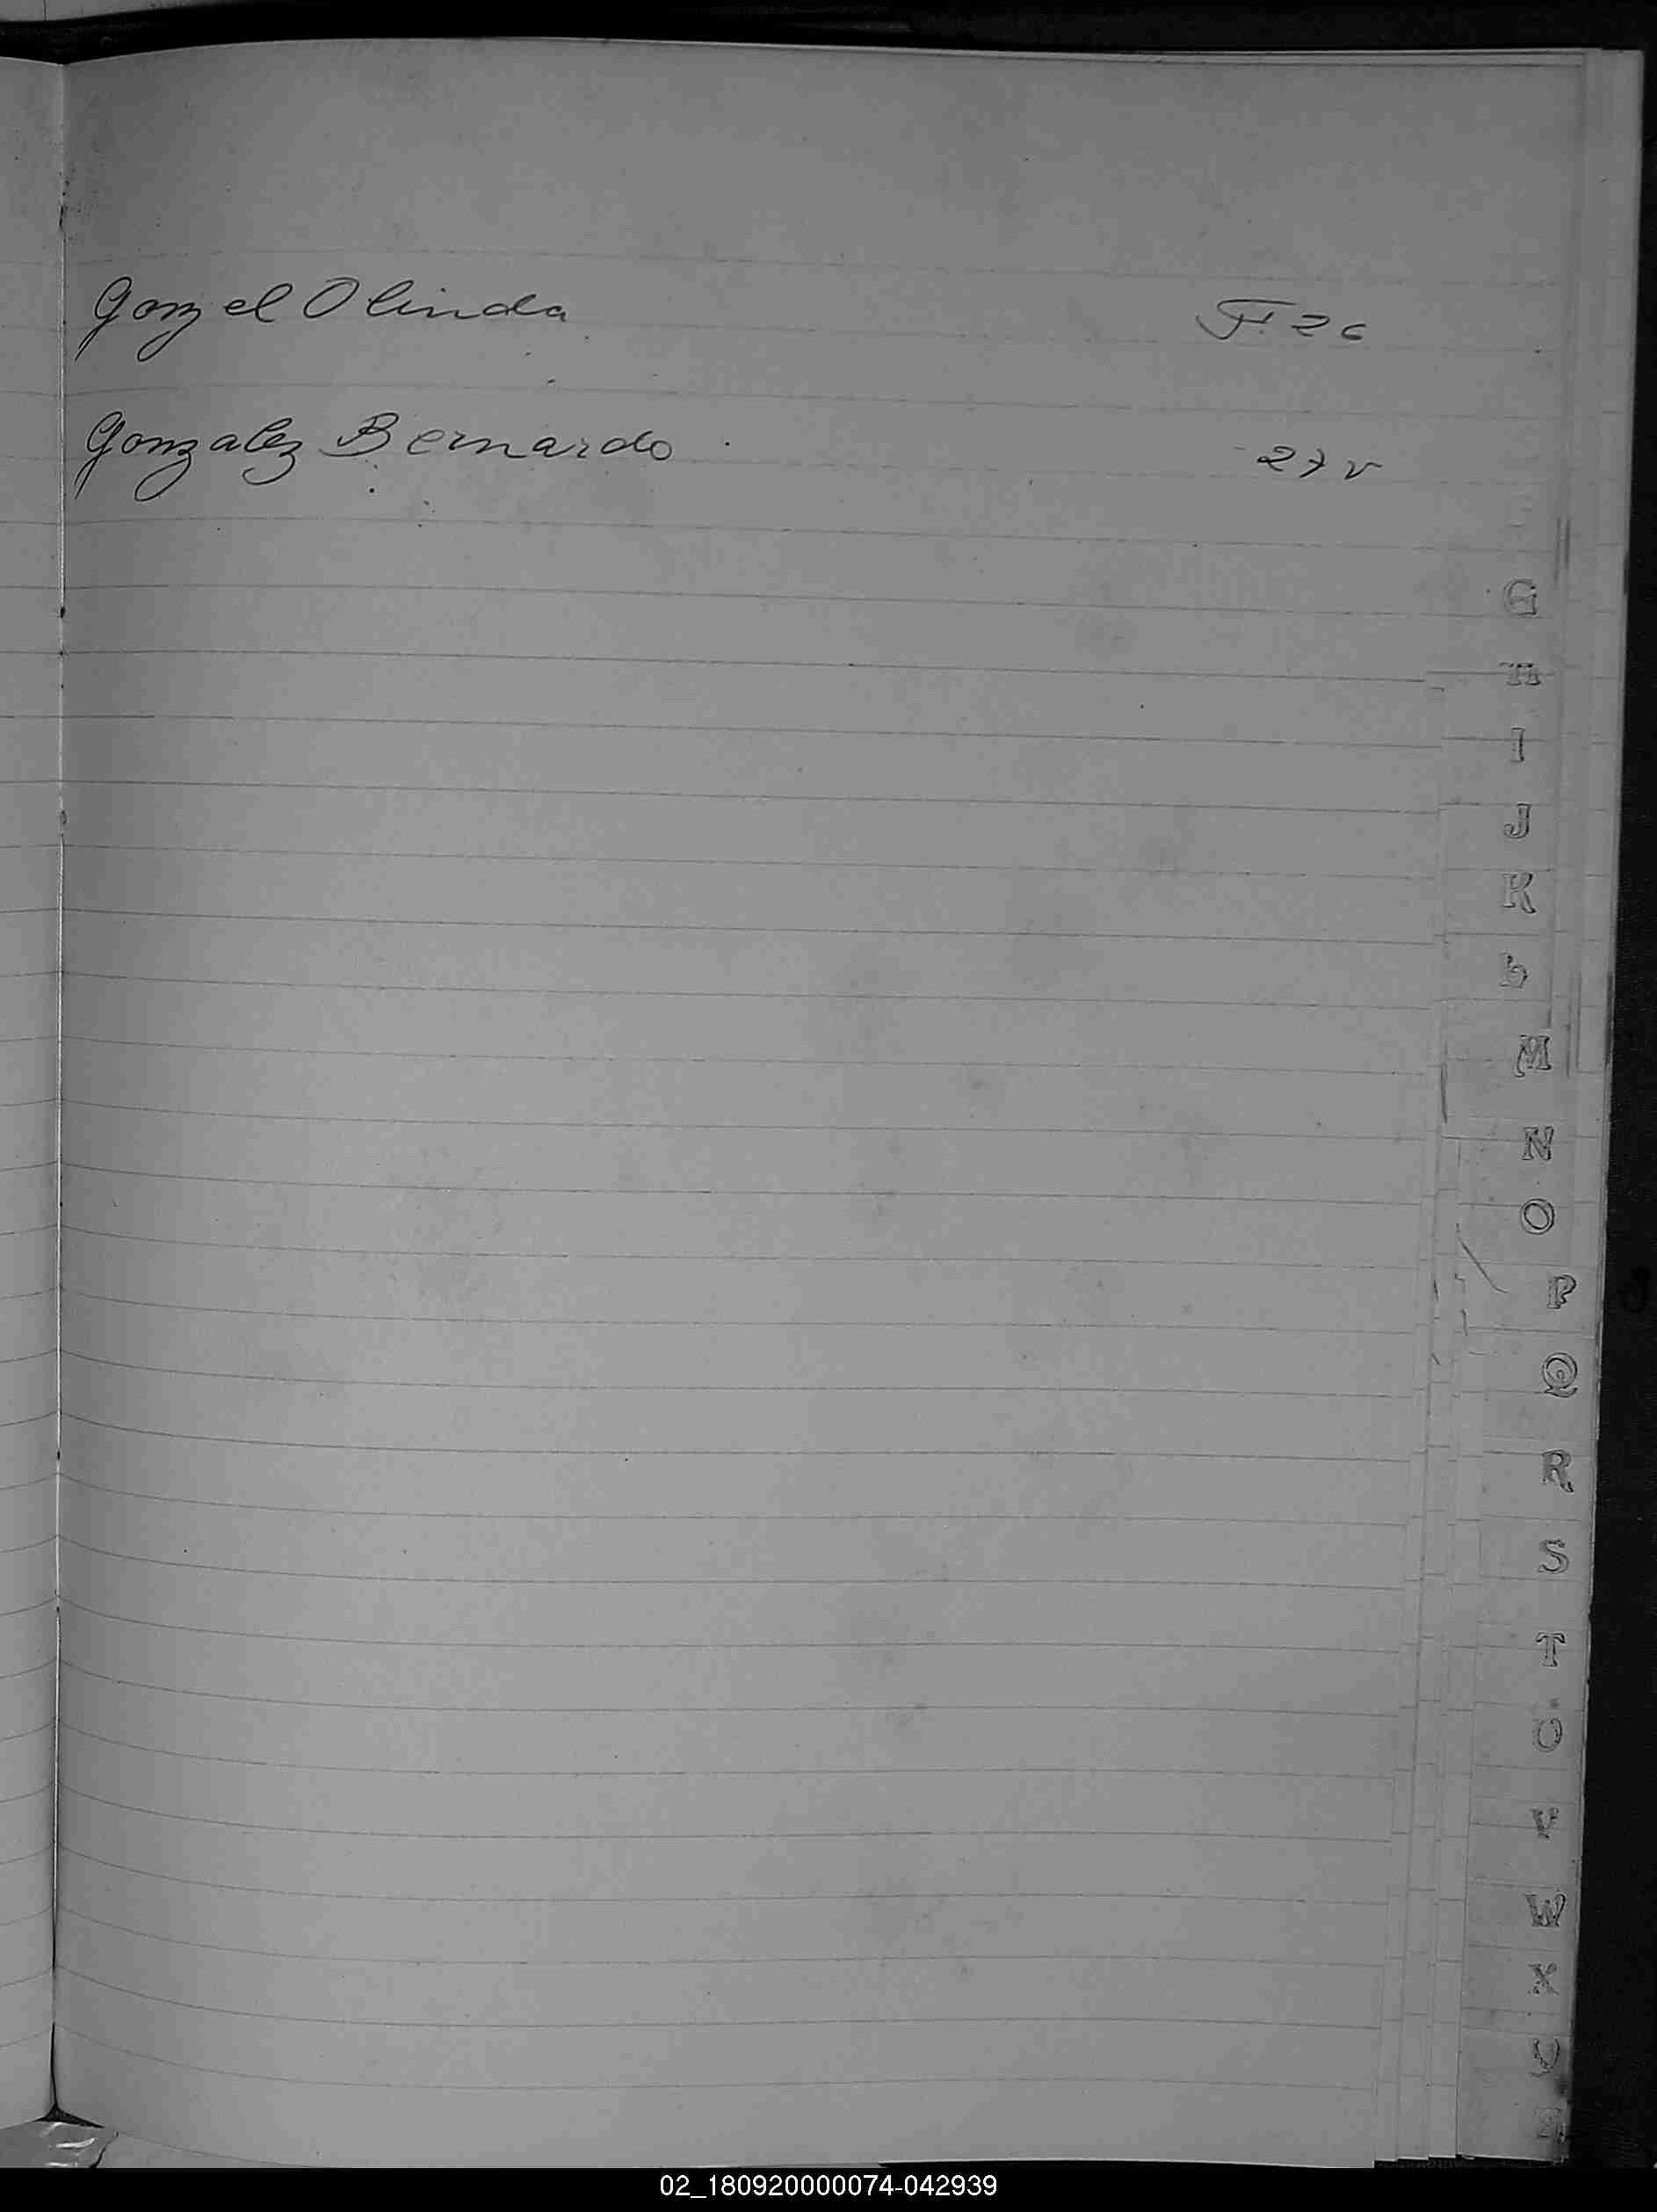 Gonzel Olinda F. 26
Gonzalez Bernardo 27 v
G
H
I
J
K
L
M
N
O
P
Q
R
S
T
U
V
W
X
Y
02_180920000074-042939